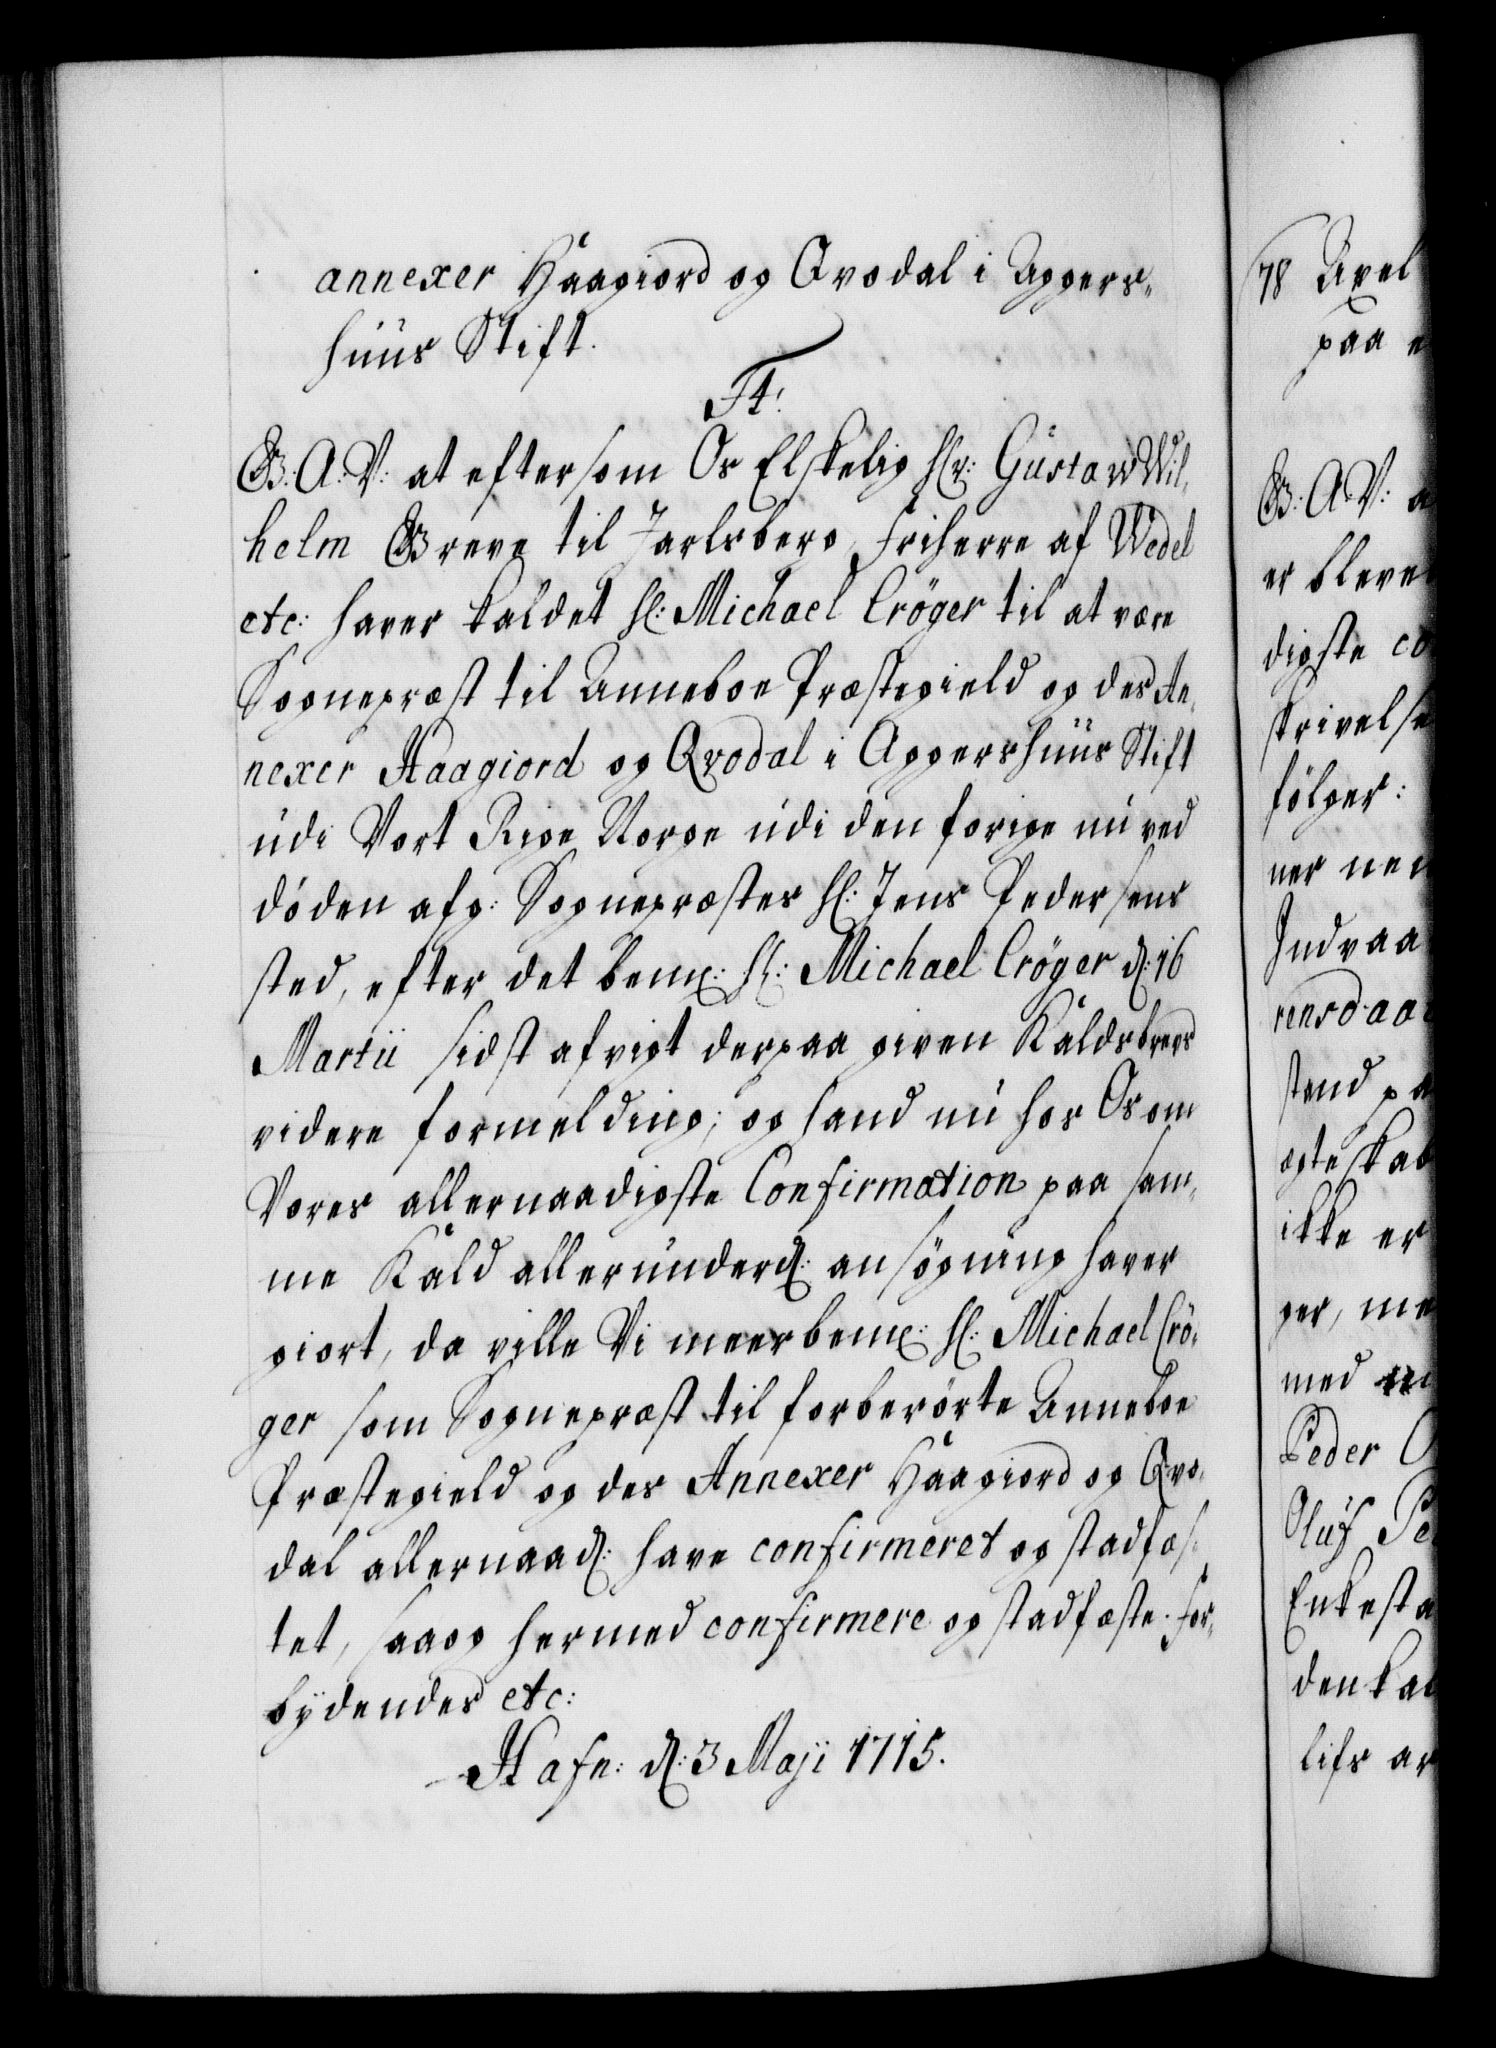 annexer Haagiord og Qvodal i Aggers„
huus Stift.
F4!
G: A: V: at eftersom Os Elskelig Hr: Gustaw Wil„
helm Greve til Jarlsberg, Friherre af Wedel
etc: haver kaldet Hr: Michael Crøger til at være
Sognepræst til Anneboe Præstegield og des An„
nexer Haagiord og Qvodal i Aggershuus Stift
udi Vort Rige Norge udi den forige nu ved
døden afg: Sognepræstes Hr: Jens Pedersens
sted, efter det bemte: Hr: Michael Crøger d: 16
Martii sidst afvigt derpaa given Kaldsbrevs
videre formelding; og hand nu hos Os om
Vores allernaadigste Confirmation paa sam„
me Kald allerunderd: ansøgning haver
giort, da ville Vi meerbemte: Hr: Michael Crø„
ger som Sognepræst til forberørte Anneboe
Præstegield og des Annexer Haagiord og Qvo„
dal allernaad: have confirmeret og stadfæs„
tet, saa og hermed confirmere og stadfæste. For„
bydendes etc:
Hafn: d: 3 Maji 1715.
78 Axel
paa e
G: A: V: a
er bleve
digste co
skrivelse
følger:
ner nem
Indvaa
rensd. aa
stand pa
ægteskab
ikke er
ger, me
med
Peder O
Oluf Pe
Enkesta
den kal
lifs ar